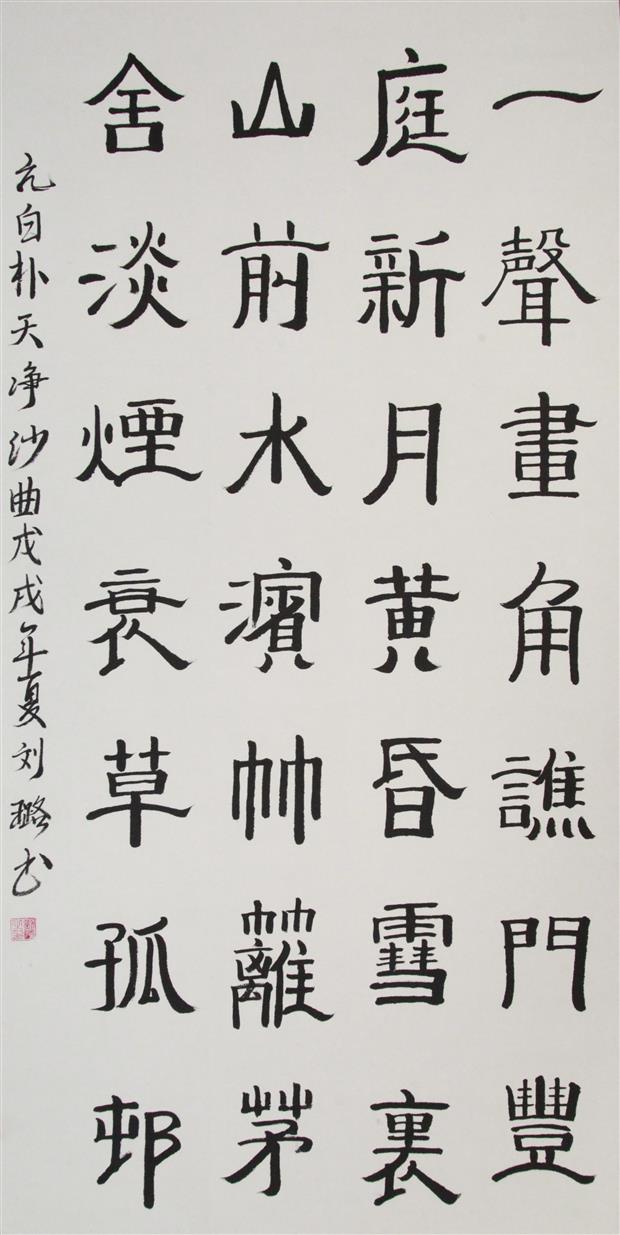 一聲畫角譙門豐
庭新月黄昏雪裏
山前水濱竹籬茅
舍淡煙衰草孤邨
元白朴天净沙曲戊戌年夏刘璐书